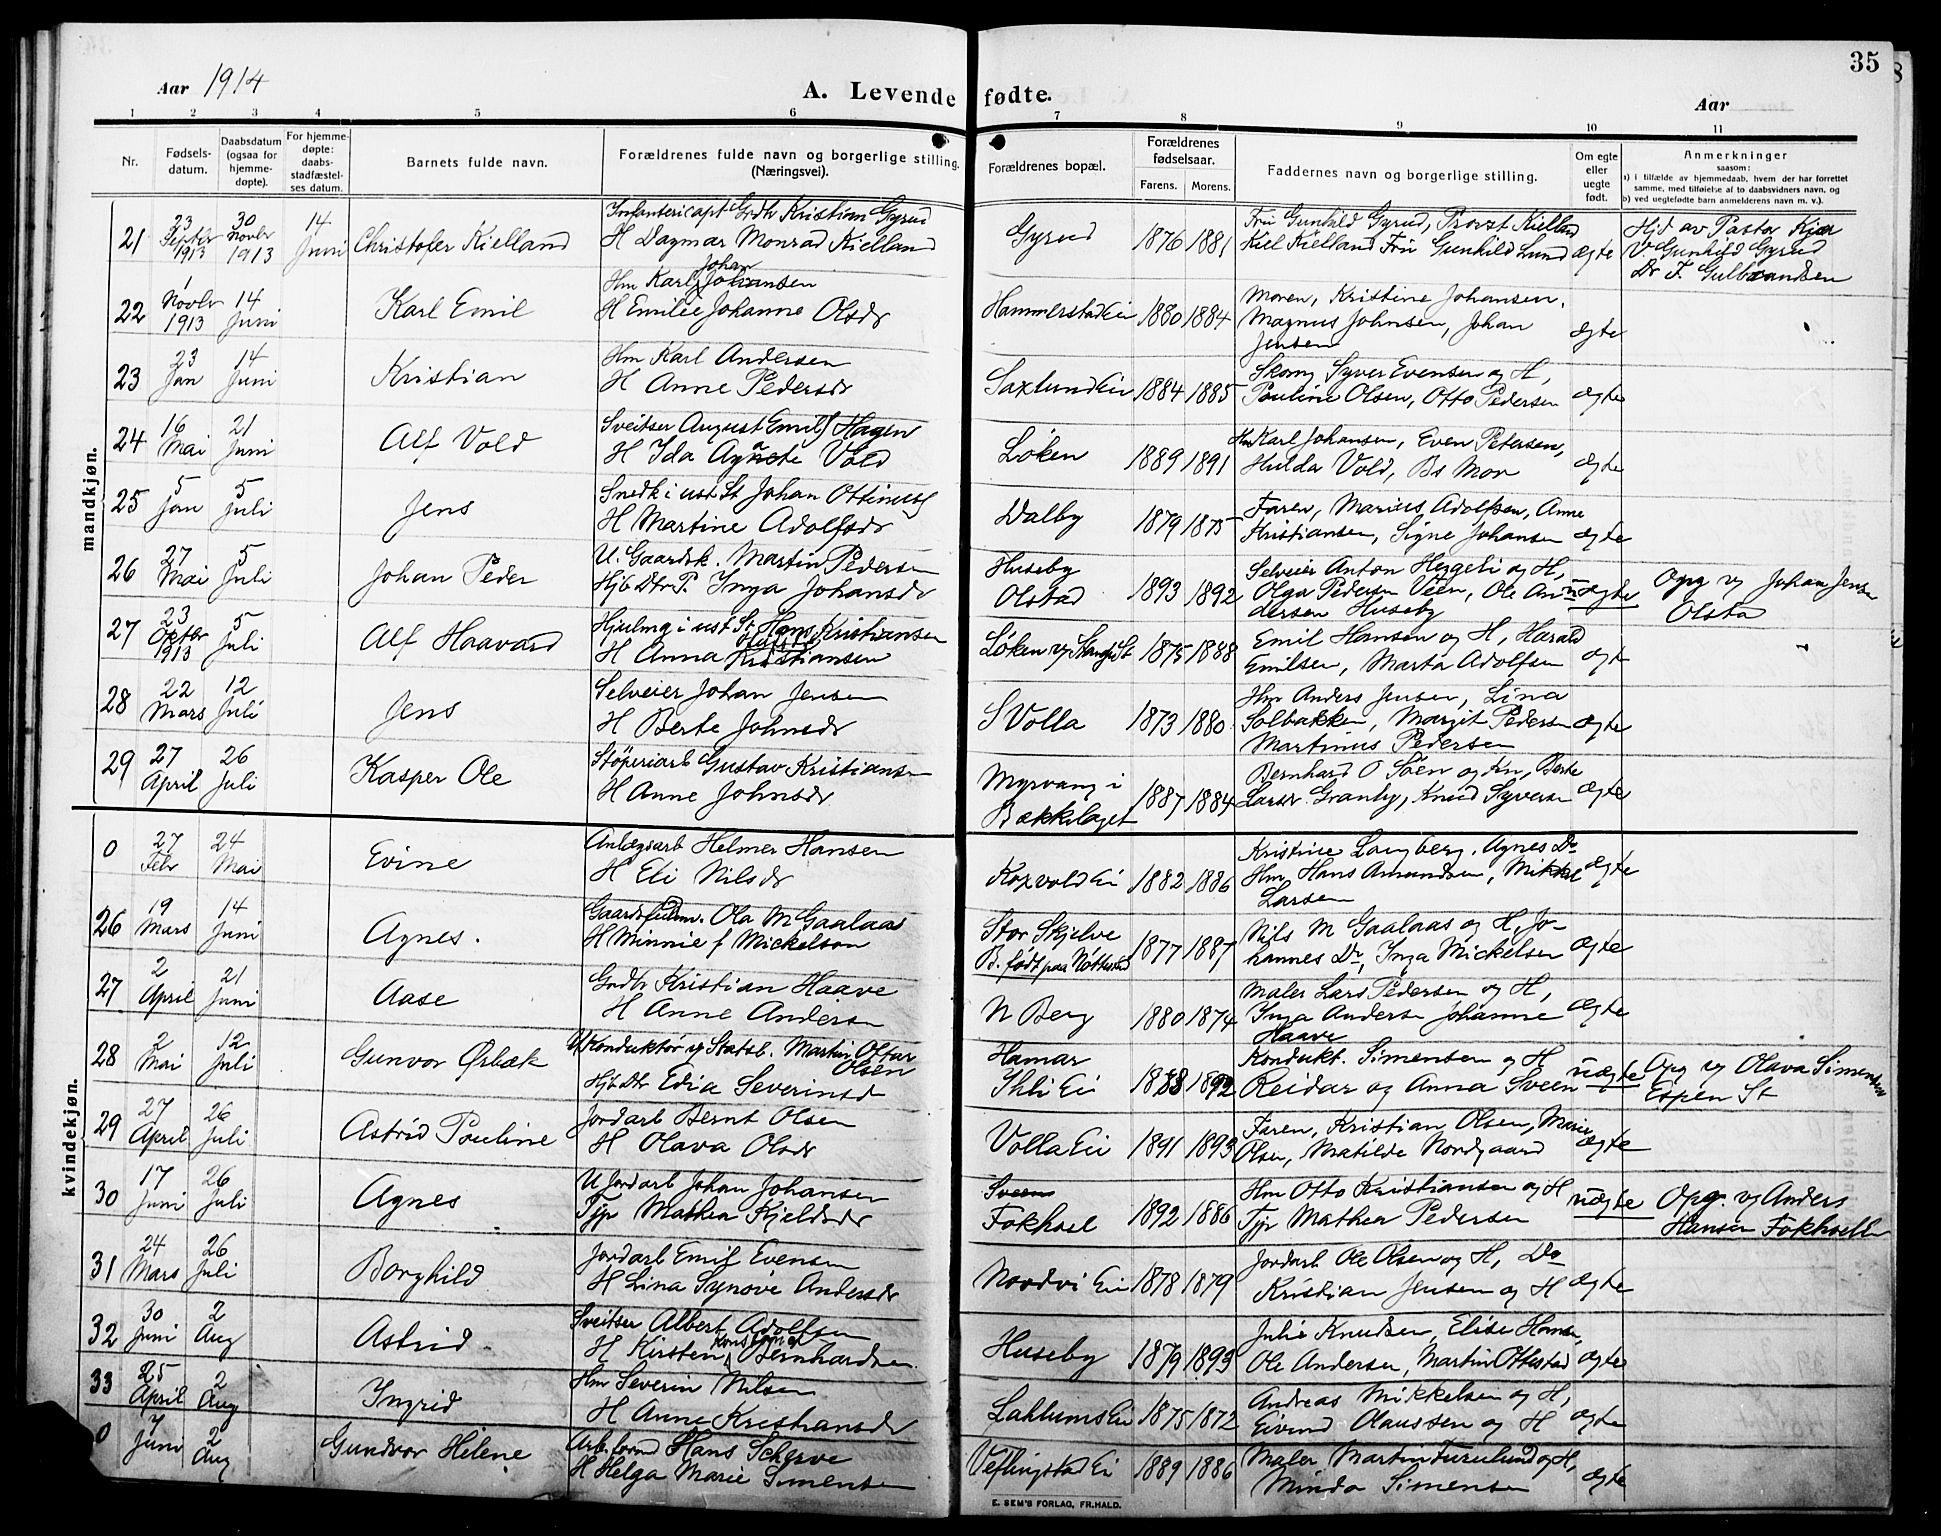 Aar 1914
A. Levende fødte.
Aar
35
1 2 3 4 5 6 7 8 9 10 11
Nr.
Fødselsdatum.
Daabsdatum (ogsaa for hjemmedøpte).
For hjemmedøpte: daabsstadfæstelses datum.
Barnets fulde navn.
Forældrenes fulde navn og borgerlige stilling. (Næringsvei).
Forældrenes bopæl.
Forældrenes fødselsaar.
Farens. Morens.
Faddernes navn og borgerlige stilling.
Om egte eller uegte født.
Anmerkninger
saasom:
a) i tilfælde av hjemmedaab, hvem der har forrettet samme, med tilføielse af to daabsvidners navn, og
b) ved uegtefødte barn anmelderens navn m. v.).
mandkjøn.
21 23 Septbr 1913 30 Novbr 1913 14 Juni Christofer Kielland
Infantericapt Grdbr Kristian Gyrud
H Dagmar Monrad Kielland
Gyrud 1876 1881
Fru Gunhild Gyrud, Provst Kielland
Kiel Kielland Fru Gunhild Lund ægte
Hjd av Pastor Kjær
V. Gunhild Gyrud
Dr F. Gulbrandsen
22 1 Novbr 1913 14 Juni Karl Emil
Hm Karl Johan Johansen
H Emilie Johanne Olsdr
Hammerstad Ei 1880 1884
Moren, Kristine Johansen,
Magnus Johnsen, Johan
Jensen ægte
23 23 Jan 14 Juni Kristian
Hm Karl Andersen
H Anne Pedersdr
Saxlund Ei 1884 1885
Skom Syver Evensen og H,
Pauline Olsen, Otto Pedersen ægte
24 16 Mai 21 Juni Alf Vold
Sveitser August Emil Hagen
H Ida Agnete Vold
Løken 1889 1891
Hm Karl Johansen, Even Petersen,
Hulda Vold, Bs Mor ægte
25 5 Jan 5 Juli Jens
Snedk i ust St Johan Ottinus
H Martine Adolfsdr
Dalby 1879 1875
Faren, Marius Adolfsen, Anne
Kristiansen, Signe Johansen ægte
26 27 Mai 5 Juli Johan Peder
U. Gaardsk. Martin Pedersen
Hjb Dtr P. Inga Johansdr
Huseby
Olstad 1893 1892
Selveier Anton Heggeli og H,
Olga Pedersen Veen, Ole An
dersen Huseby uægte
Opg v Johan Jensen
Olstad
27 23 Oktbr 1913 5 Juli Alf Haavard
Hjulmg i ust St Hans Kristiansen
H Anna Kristiansen
Løken v Stange St 1875 1888
Emil Hansen og H, Harald
Emilsen, Marta Adolfsen ægte
28 22 Mars 12 Juli Jens
Selveier Johan Jensen
H Berte Johnsdr
S Volla 1873 1880
Hm Anders Jensen, Lina
Solbakken, Margit Pedersen
Martinus Pedersen ægte
29 27 April 26 Juli Kasper Ole
Støperiarb Gustav Kristiansen
H Anne Johnsdr
Myrvang i
Bækkelaget 1887 1884
Bernhard O Søen og Kn, Berte
Larsdr Granby, Knud Syversen ægte
kvindekjøn.
0 27 Febr 24 Mai Evine
Anlægsarb Helmer Hansen
H Eli Nilsdr
Koxvold Ei 1882 1886
Kristine Langberg, Agnes Do
Hm, Hans Amundsen, Mikkel
Larsen ægte
26 19 Mars 14 Juni Agnes.
Ola M Gaalaas
H Minnie f Mickelson
Stor Skjelve
B. født paa Nøttestad 1877 1887
Nils M Gaalaas og H, Jo-
hannes Do, Inga Mickelsen ægte
27 2 April 21 Juni Aase
Grdbr Kristian Haave
H Anne Andersen
N Berg 1880 1874
Maler Lars Pedersen og H,
Inga Andersen Johanne
Haave ægte
28 2 Mai 12 Juli Gunvor Ørbæk
U Konduktør v Statsb. Martin Ottar
Olsen
Hjb Dtr Edia Severinsd
Hamar
Ihli Ei 1888 1892
Kondukt. Simensen og H
Reidar og Anna Sveen uægte
Opg v Olava Simensen
Espen St
29 27 April 26 Juli Astrid Pauline
Jordarb Bernt Olsen
H Olava Olsdr
Volla Ei 1891 1893
Faren, Kristian Olsen, Marie
Olsen, Matilde Nordgaard ægte
30 17 Juni 26 Juli Agnes
U Jordarb Johan Johansen
Tjp Mathea Kjeldsdr
Sveen
Fokhoel 1892 1886
Hm Otto Kristiansen og H
Tjp Mathea Pedersen uægte
Opg. v Anders
Hansen Fokhoel
31 24 Mars 26 Juli Borghild
Jordarb Emil Evensen
H Lina Synøve Andersdr
Nordvi Ei 1878 1879
Jordarb Ole Olsen og H, Do
Kristian Jensen og H ægte
32 30 Juni 2 Aug Astrid
Sveitser Albert Adolfsen
H Kirsten Bernhardsen
Huseby 1879 1893
Julie Knudsen, Elise Hansen,
Ole Andersen, Martin Ottestad ægte
33 25 April 2 Aug Ingrid
Hm Severin Nilsen
H Anne Kristiansdr
Lahlums Ei 1875 1872
Andreas Mikkelsen og H,
Eivind Olaussen og H ægte
0 7 Juni 2 Aug Gundvor Helene
Arb.formd Hans Scherve
H Helga Marie Simensen
Veflingstad Ei 1889 1886
Maler Martin Furulund og H,
Minda Simensen ægte
E. SEM'S FORLAG, FR.HALD.